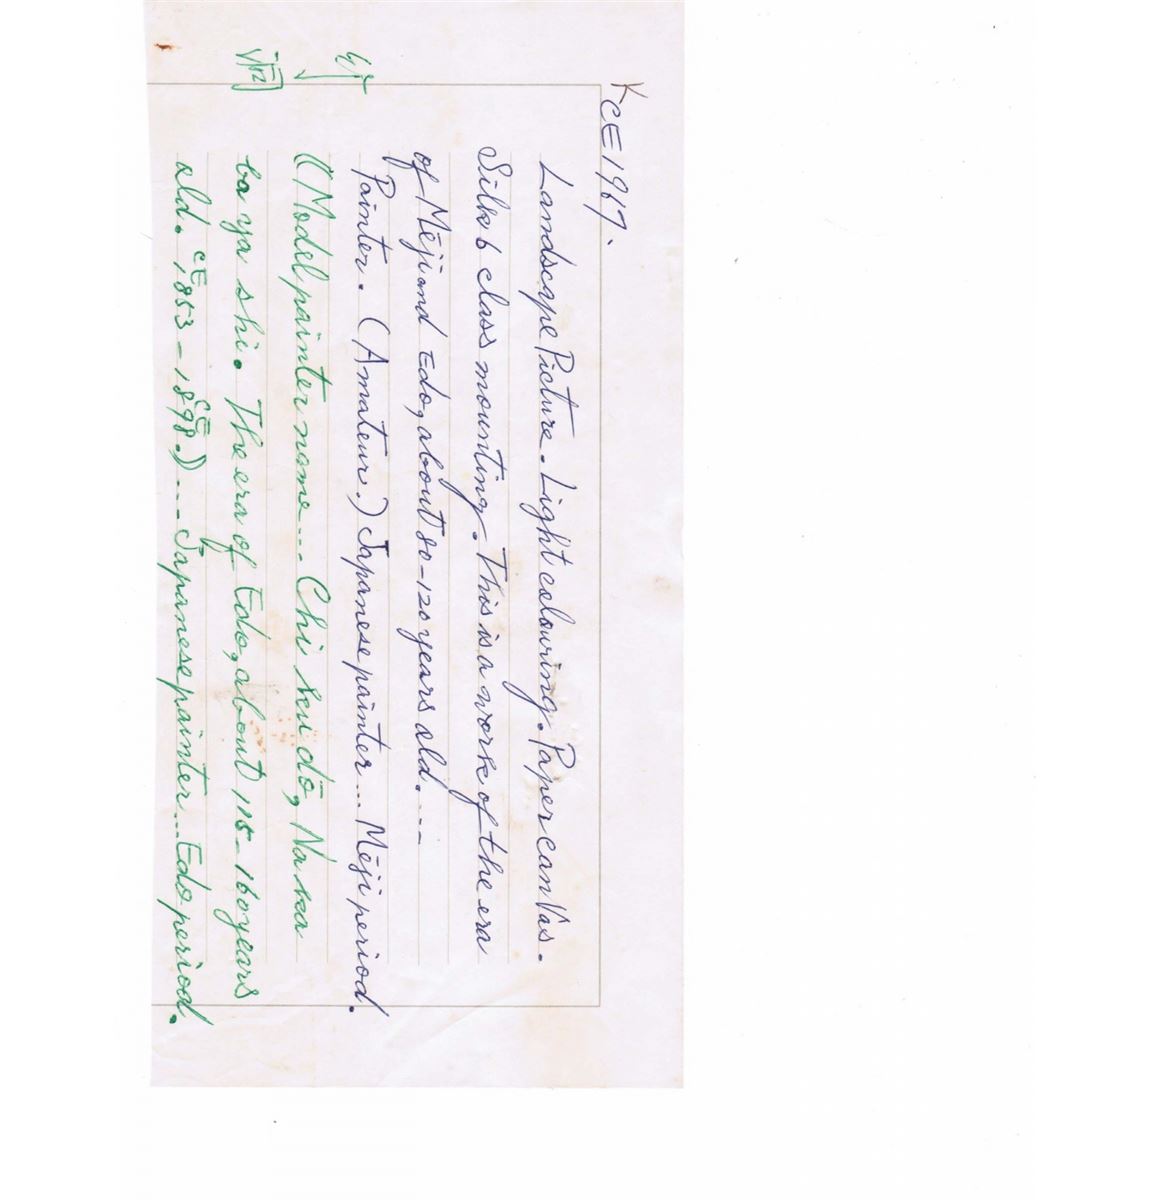 CE1967.
Landscape Picture. Light colouring. Paper canvas.
Silk b class mounting. This is a work of the era
of Mēji and Edo, about 80-120 years old. ---
Painter. (Amateur.) Japanese painter... Mēji period.
((Model painter name... Chi sui dō, Naka
ba ya shi. The era of Edo, about 115-160 years
old. CE 1853 - CE 1898.) --- Japanese painter... Edo period.